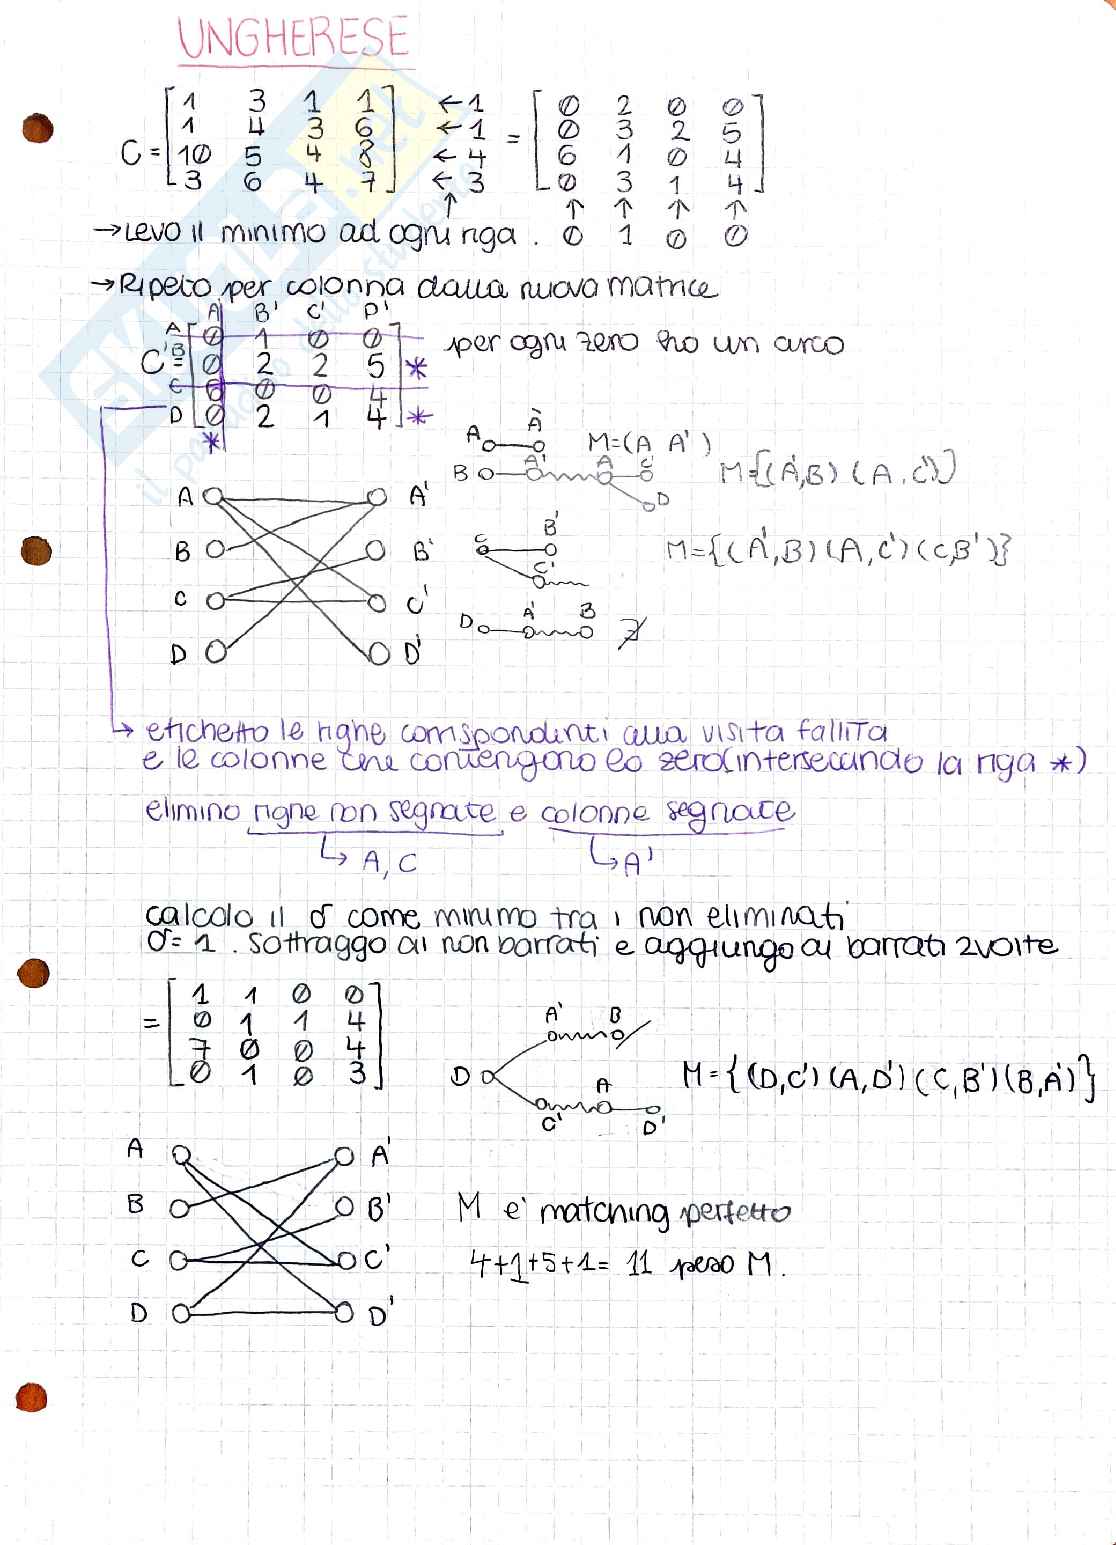 UNGHERESE
C = [1 3 1 1 ←1 = [0 2 0 0
1 4 3 6 ←1 0 3 2 5
10 5 4 8 ←4 6 1 0 4
3 6 4 7] ←3 0 3 1 4]
↑ ↑ ↑ ↑ ↑
→Levo il minimo ad ogni riga. 0 1 0 0
→Ripeto per colonna dalla nuova matrice
A' B' C' D'
A [0 1 0 0
C' = B 0 2 2 5 * per ogni zero ho un arco
C 6 0 0 4
D 0 2 1 4] *
*
A A' M=(A A')
B A' A C' D M={(A',B) (A,C')}
A A'
B B'
C C'
D D'
C B' C' M={(A',B)(A,C')(C,B')}
D A' B ∄
↳ etichetto le righe corrispondenti alla visita fallita
e le colonne che contengono lo zero(intersecando la riga *)
elimino righe non segnate e colonne segnate
↳ A, C ↳ A'
calcolo il σ come minimo tra i non eliminati
σ=1. sottraggo ai non barrati e aggiungo ai barrati 2volte
= [1 1 0 0
0 1 1 4
7 0 0 4
0 1 0 3]
A' B
D A M={(D,C')(A,D')(C,B')(B,A')}
C' D'
A A'
B B' M è matching perfetto
C C' 4+1+5+1= 11 peso M.
D D'
SKUOLA.net
il paradiso dello studente